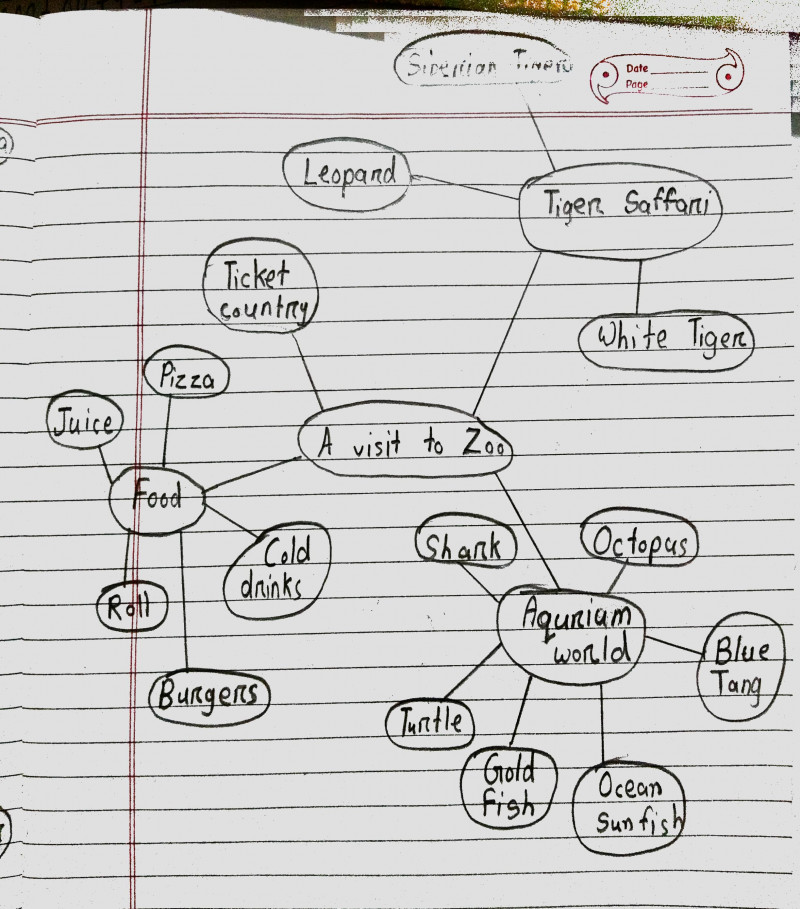 Siberian Tigers
Date
Page
Leopard
Tiger Saffari
Ticket
country
White Tiger
Pizza
Juice
A visit to Zoo
Food
Shark
Octopus
Cold
drinks
Roll
Aqurium
world
Blue
Tang
Burgers
Turtle
Gold
fish
Ocean
Sun fish